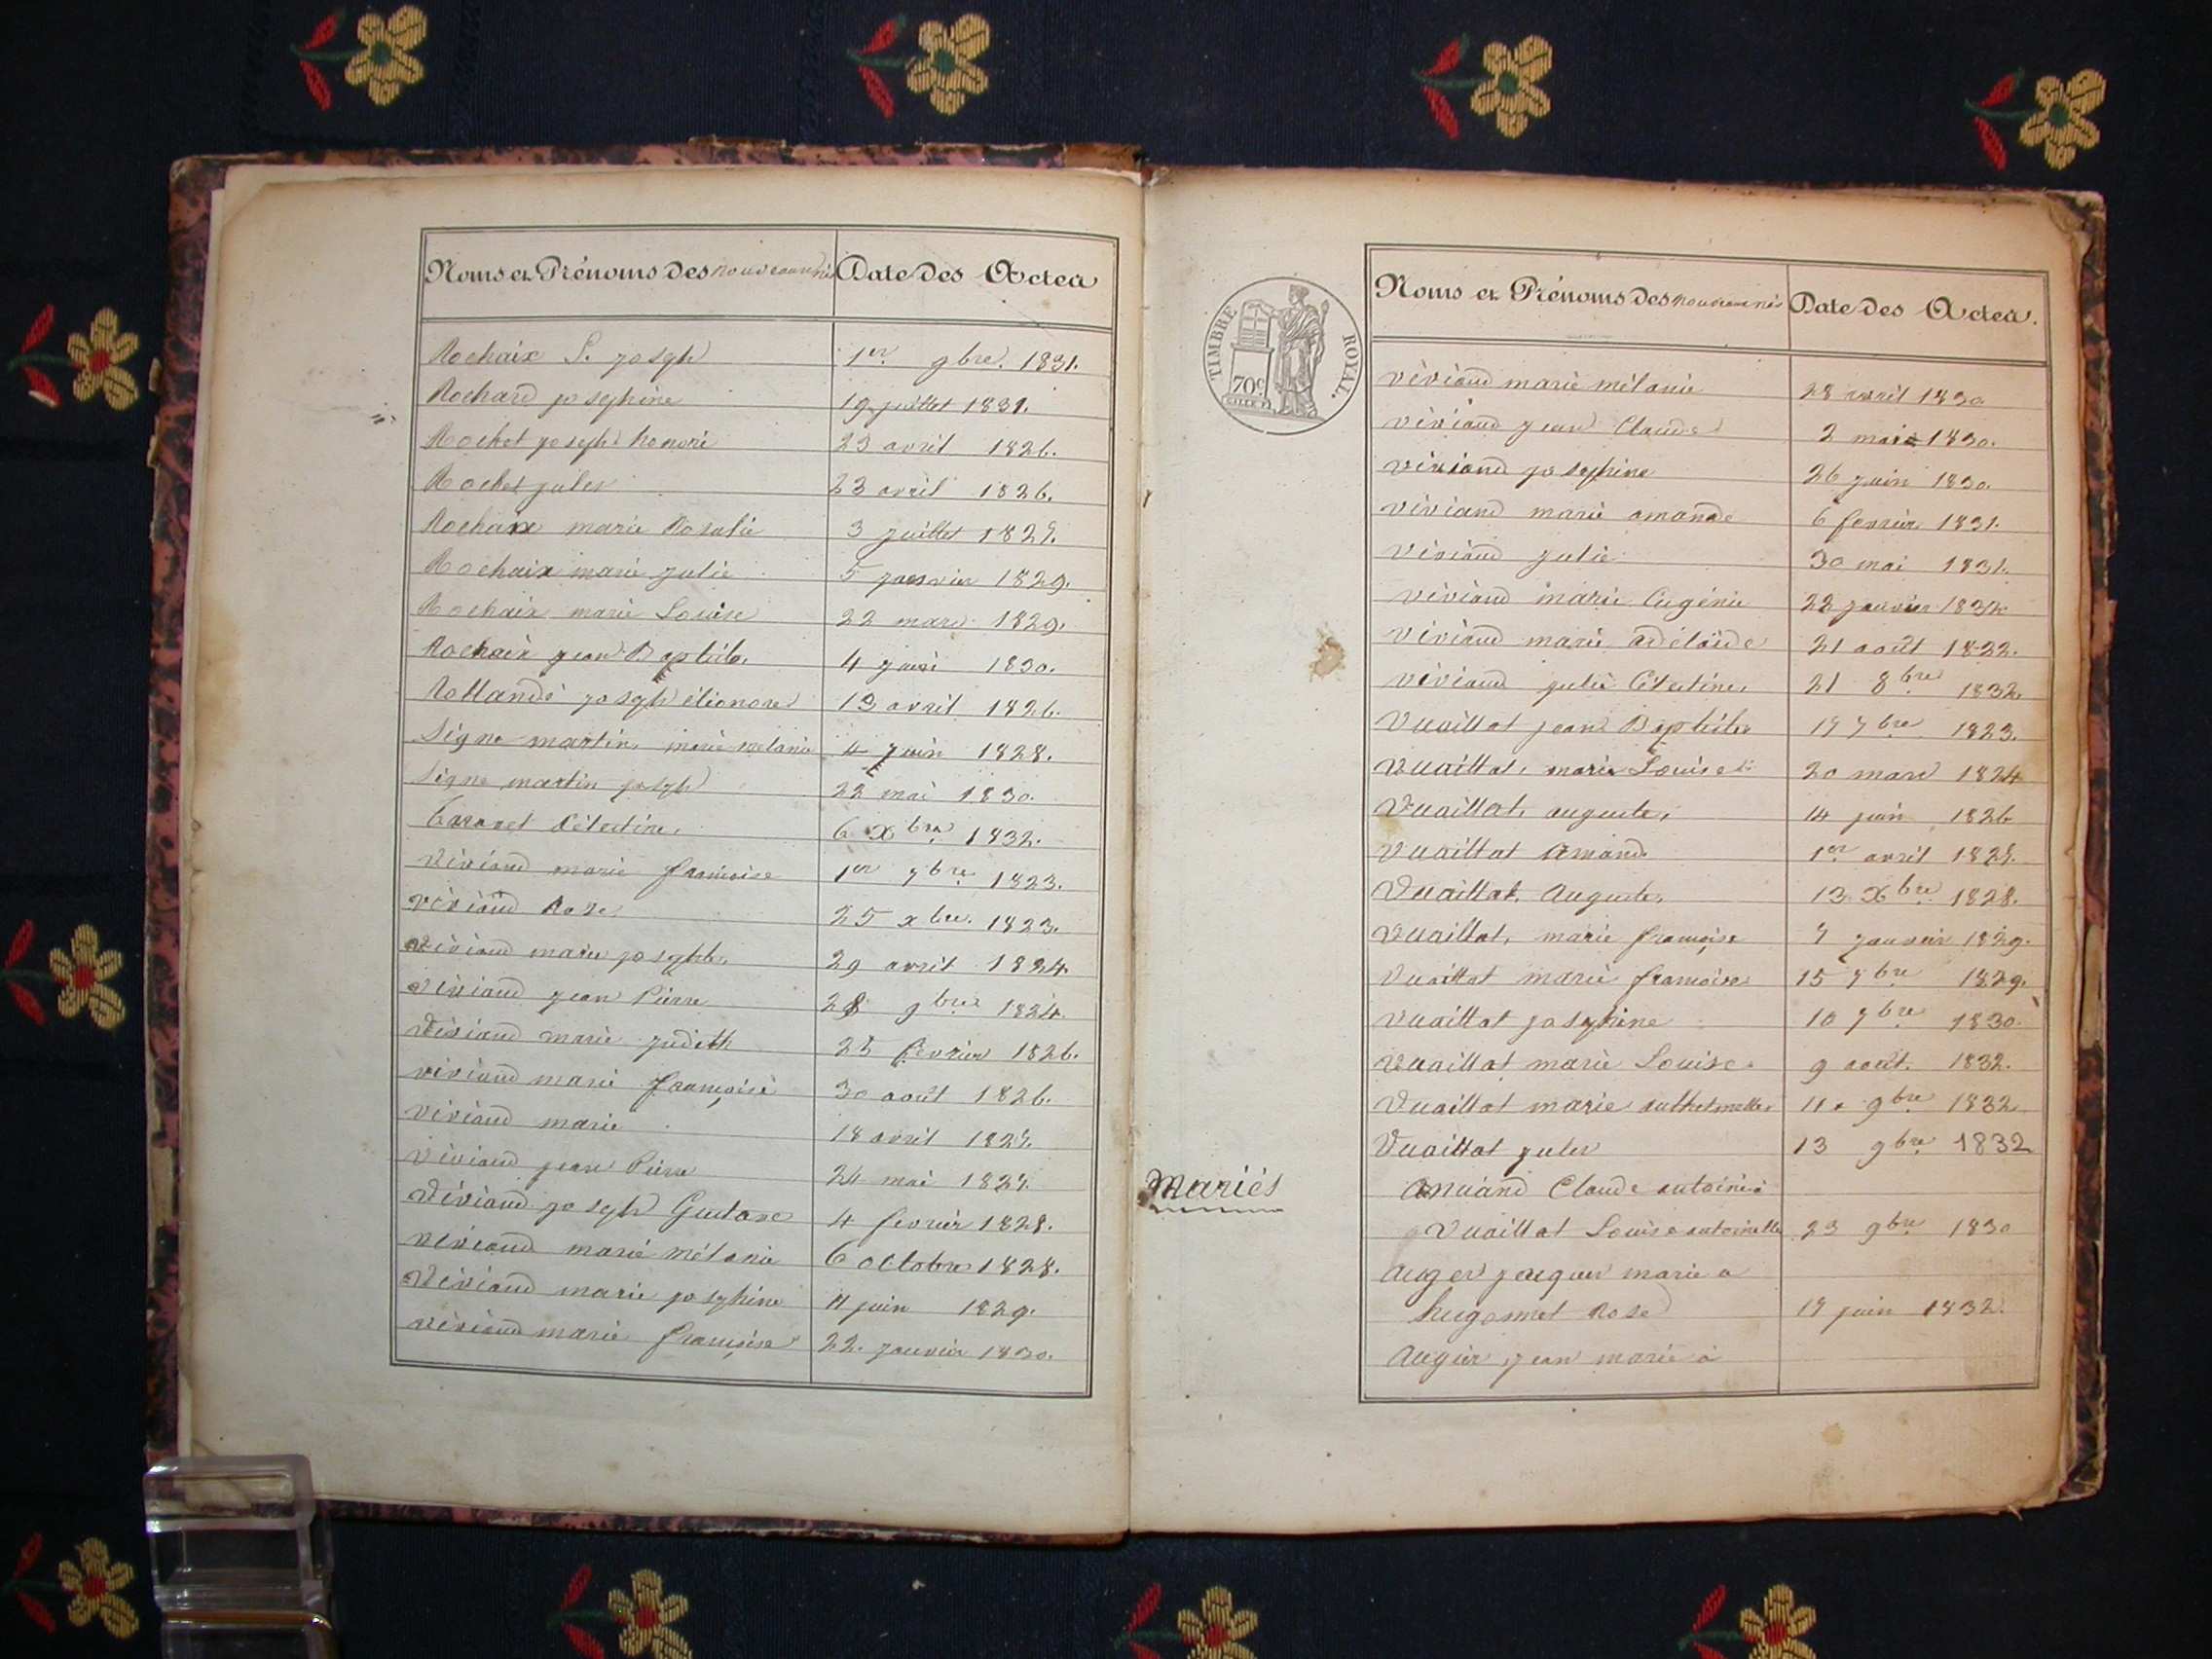 Noms et Prénoms Des nouveaux nés Date Des Actes
Rochaix S. joseph 1er 9bre. 1831.
Rochard josephine 19 juillet 1831.
Rochet joseph honoré 23 avril 1826.
Rochet jules 23 avril 1826.
Rochaix marie Rosalie 3 juillet 1827.
Rochaix marie julie 5 janvier 1829.
Rochaix marie Louise 22 mars 1829.
Rochaix jean Baptiste 4 1830.
joseph 13 avril 1826.
Signe martin marie melanie 4 juin 1828.
Signe martin joseph 22 mai 1830.
Célestine 6 xbre 1832.
Viviand marie françoise 1er 7bre 1823.
viviand Rose 25 xbre. 1823.
Viviand marie josephte 29 avril 1824
Viviand jean Pierre 28 9bre 1824.
Viviand marie judith 25 fevrier 1826.
viviand marie françoise 30 août 1826.
viviand marie 18 avril 1827.
viviand jean Pierre 24 mai 1827.
Viviand joseph Gustave 4 fevrier 1828.
viviand marie mélanie 6 octobre 1828.
Viviand marie josephine 11 juin 1829.
viviand marie françoise 22. janvier 1830.
TIMBRE ROYAL.
70c.
Noms et Prénoms Des nouveaux nés Date Des Actes.
viviand marie mélanie 28 avril 1830
viviand jean Claude 2 1830.
viviand josephine 26 juin 1830.
viviand marie amande 6 fevrier 1831.
Viviand julie 30 mai 1831.
viviand marie Eugénie 22 janvier
Viviand marie adélaïde 21 août
viviand julie Célestine 21 8bre 1832
Vuaillat jean Baptiste 17 7bre 1823.
Vuaillat, marie Louise 20 mars 1824
Vuaillat, auguste, 14 juin 1826
Vuaillat amand 1er avril 1827.
Vuaillat, Auguste, 13 xbre 1828.
Vuaillat, marie françoise 7 janvier 1829.
Vuaillat marie françoise 15 7bre 1829.
Vuaillat josephine 10 7bre 1830.
Vuaillat marie Louise 9 août. 1832.
Vuaillat marie 11 9bre 1832
Vuaillat jules 13 9bre 1832
Mariés
Claude antoine à
Vuaillat Louise antoinette 23 9bre 1830
Auger jacques marie a
hugonnet Rose 17 juin 1832.
Augier jean marie à